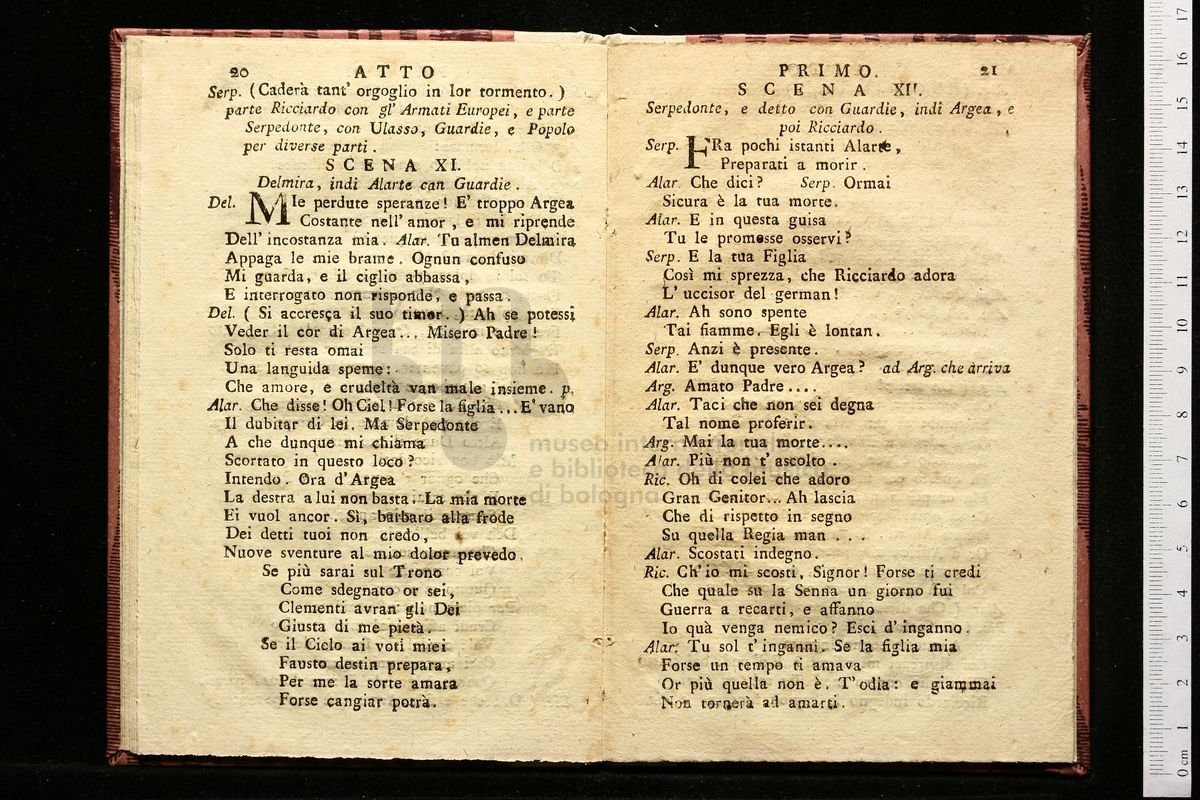 20 ATTO
Serp. (Caderà tant' orgoglio in lor tormento.)
parte Ricciardo con gl' Armati Europei, e parte
Serpedonte, con Ulasso, Guardie, e Popolo
per diverse parti.
SCENA XI.
Delmira, indi Alarte con Guardie.
Del. MIe perdute speranze! E' troppo Argea
Costante nell' amor, e mi riprende
Dell' incostanza mia. Alar. Tu almen Delmira
Appaga le mie brame. Ognun confuso
Mi guarda, e il ciglio abbassa,
E interrogato non risponde, e passa.
Del. (Si accresça il suo timor..) Ah se potessi
Veder il cor di Argea... Misero Padre!
Solo ti resta omai
Una languida speme:
Che amore, e crudeltà van male insieme. p.
Alar. Che disse! Oh Ciel! Forse la figlia... E' vano
Il dubitar di lei. Ma Serpedonte
A che dunque mi chiama
Scortato in questo loco?
Intendo. Ora d' Argea
La destra a lui non basta: La mia morte
Ei vuol ancor. Sì, barbaro alla frode
Dei detti tuoi non credo,
Nuove sventure al mio dolor prevedo.
Se più sarai sul Trono
Come sdegnato or sei,
Clementi avran gli Dei
Giusta di me pietà.
Se il Cielo ai voti miei
Fausto destin prepara,
Per me la sorte amara
Forse cangiar potrà.
PRIMO. 21
SCENA XII.
Serpedonte, e detto con Guardie, indi Argea, e
poi Ricciardo.
Serp. FRa pochi istanti Alarte,
Preparati a morir.
Alar. Che dici? Serp. Ormai
Sicura è la tua morte.
Alar. E in questa guisa
Tu le promesse osservi?
Serp. E la tua Figlia
Così mi sprezza, che Ricciardo adora
L' uccisor del german!
Alar. Ah sono spente
Tai fiamme. Egli è lontan.
Serp. Anzi è presente.
Alar. E' dunque vero Argea? ad Arg. che arriva
Arg. Amato Padre....
Alar. Taci che non sei degna
Tal nome proferir.
Arg. Mai la tua morte....
Alar. Più non t' ascolto.
Ric. Oh di colei che adoro
Gran Genitor... Ah lascia
Che di rispetto in segno
Su quella Regia man ...
Alar. Scostati indegno.
Ric. Ch' io mi scosti, Signor! Forse ti credi
Che quale su la Senna un giorno fui
Guerra a recarti, e affanno
Io quà venga nemico? Esci d' inganno.
Alar. Tu sol t' inganni. Se la figlia mia
Forse un tempo ti amava
Or più quella non è. T' odia: e giammai
Non tornerà ad amarti.
museo
e biblioteca
di bologna
0 cm 1 2 3 4 5 6 7 8 9 10 11 12 13 14 15 16 17